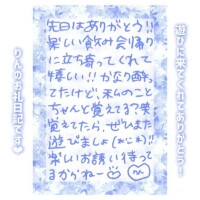 遊びに来てくれてありがとう!
先日はありがとう!!
楽しい飲み会帰り
に立ち寄ってくれて
嬉しい!!かなり酔っ
てたけど、私のこと
ちゃんと覚えてる?笑
覚えてたら、ぜひまた
遊びましょ(おじぎ)!!
楽しいお誘い待って
るからねー
りんのお礼日記です♥